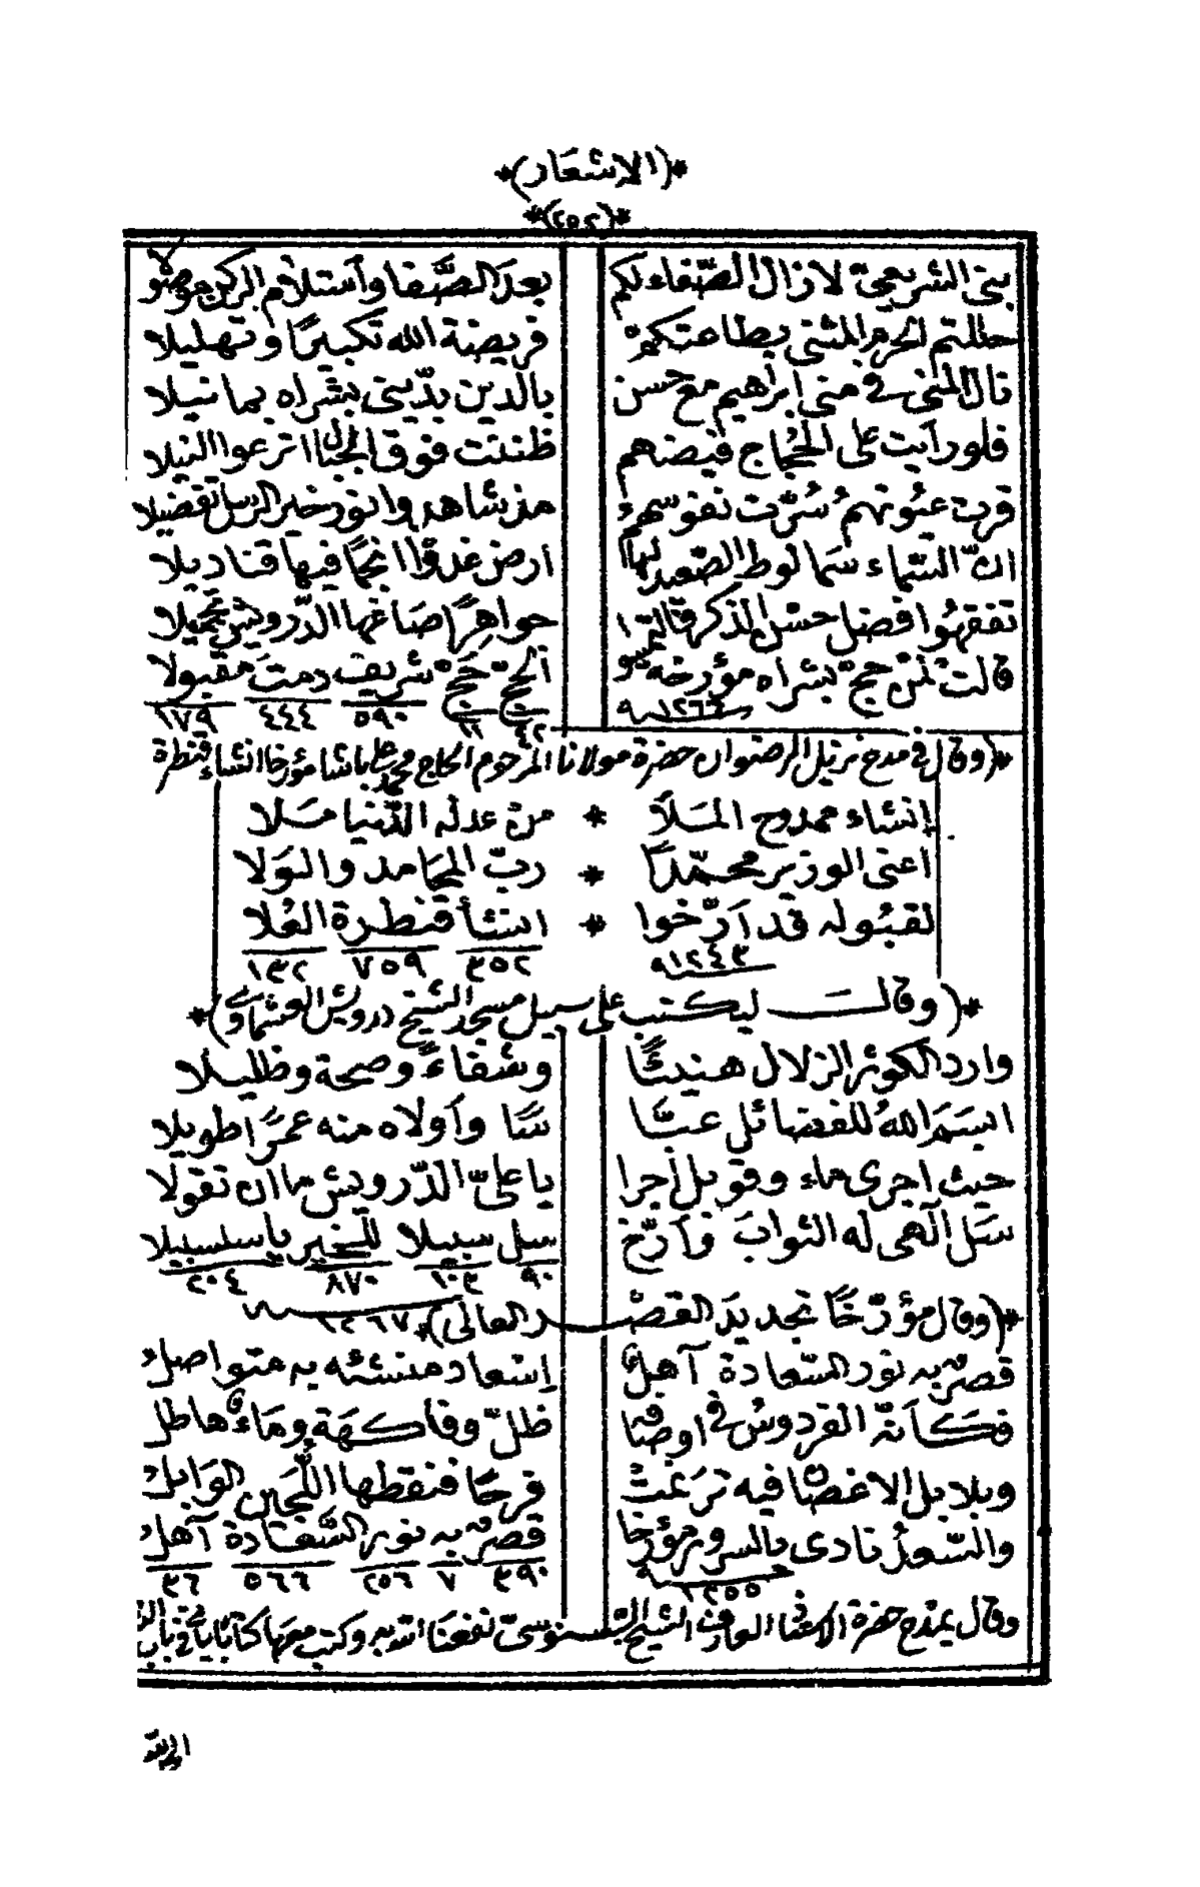 *(الاشعار)*
*(٢٥٢)*
بنى الشريعيّ لا زال الصّفاء لكم بعد الصَّفا وآستلام الركن
حللتم الحرم المثنى بطاعتكم فريضة الله تكبيرًا وتهليلا
نال المنى فى منى ابراهيم مع حسن بالدين بشراه بما نيلا
فلو رأيت على الحُجاج فيضهم ظننت فوق الجبال اترعوا النيلا
قرت عيونهم سُرّت نفوسهم مذ شاهدوا نور خير الرسل تفضيلا
انّ السّماء سما لوط الصّعيد لها ارض غدوا انجمًا فيها قناديلا
تفقهوا افضل حسن الذكر جواهرًا صاغها الدّرويش تجميلا
قالت لمن حجّ بشراه مؤرخة آلحجّ حَجّ شريف دمتَ مقبولا
١٢٦٦ ٤٢ ١١ ٥٩٠ ٤٤٤ ١٧٩
*(وقال فى مدح نزيل الرضوان حضرة مولانا المرحوم الحاج محمد على باشا مؤرخا انشاء قنطرة
إنشاء ممدوح المَلاَ * من عدله الدّنيا مَلا
اعنى الوزير محمّدًا * ربّ المحامد والوَلا
لقبُوله قد اَرّخوا * انشأ قنطرة العُلا
١٢٤٣ ٣٥٢ ٧٥٩ ١٣٢
*(وقالــ ليكتب على سبيل مسجد الشيخ درويش العشماوى)*
وارد الكوثر الزلال هنيئًا وشفاءً وصحة وظليلا
ابسَمَ اللهُ للفضائل عبّا سًا وآولاه منه عمرًا طويلا
حيث اجرى ماء وقوبل أجرا يا علىّ الدّرويش ما ان تقولا
سَل آلهى له الثوابَ وآرّخ سبل سبيلا للخير ياسلسبيلا
٩٠ ١٠٣ ٨٧٠ ٢٠٤
*(وقال مؤرّخًا تجديدَ القصــر العالى)* ١٢٦٧
قصرٌ به نور السّعادة آهلُ إسعاد منشئه به متواصلُ
فكأنّ الفردوسُ فى اوصافه ظلّ وفاكهة وماءٌ هاطل
وبلابل الاغصان فيه ترَنمتْ فرحًا فنقطها اللُّجَين الوَابلُ
والسّعدُ نادى بالسرور مؤرخا قصرٌ به نور السَّعادة آهلُ
١٢٥٥ ٣٩٠ ٧ ٢٥٦ ٥٦٦ ٣٦
وقال يمدح حضرة العارف الشيخ السّنوسىّ نفعنا الله به وكتب معها كتابًا